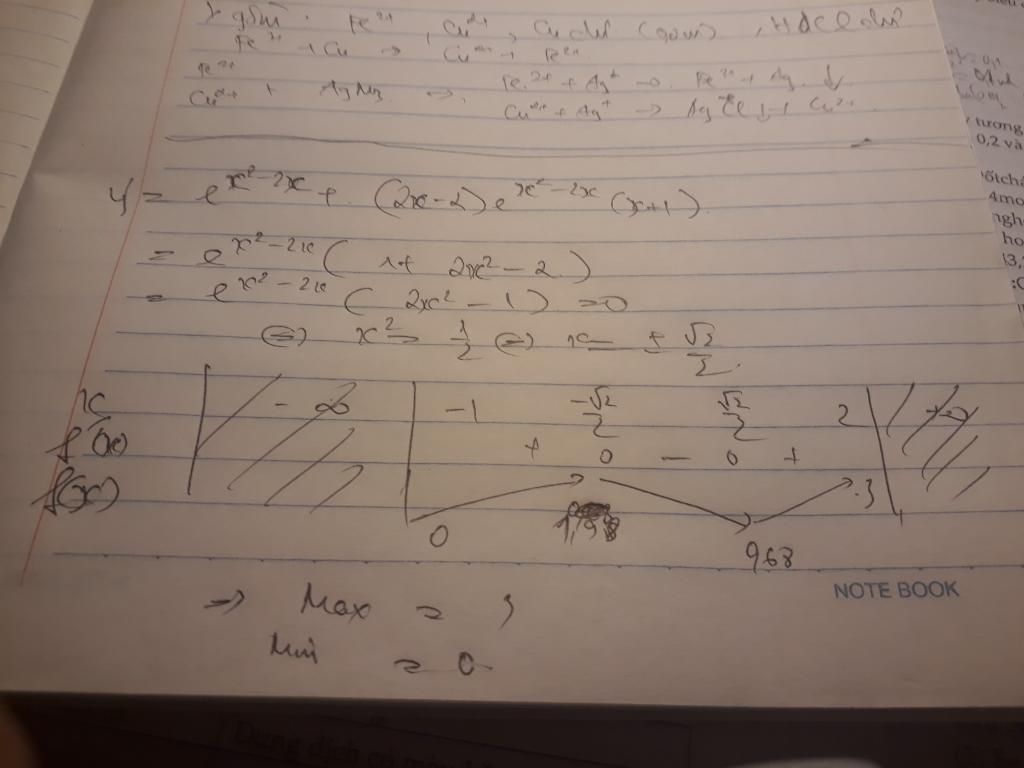 gồm: Fe²⁺, Cu²⁺, Cu dư (gam), HCl dư
Fe³⁺ + Cu → Cu²⁺ + Fe²⁺
Fe²⁺
Cu²⁺ + AgNO₃ → Fe²⁺ + Ag⁺ → Fe³⁺ + Ag ↓
→ AgCl ↓ + Cu²⁺
y = e^{x²-2x} + (2x-2)e^{x²-2x}(x+1)
= e^{x²-2x}(1+ 2x²-2)
= e^{x²-2x}(2x²-1) = 0
⇔ x² = 1/2 ⇔ x = ± √2/2
x -∞ -1 -√2/2 √2/2 2 +∞
f'(x) + 0 - 0 +
f(x) 0 0,68 3
⇒ Max = 3
Min = 0
NOTE BOOK
tương
0,2 và